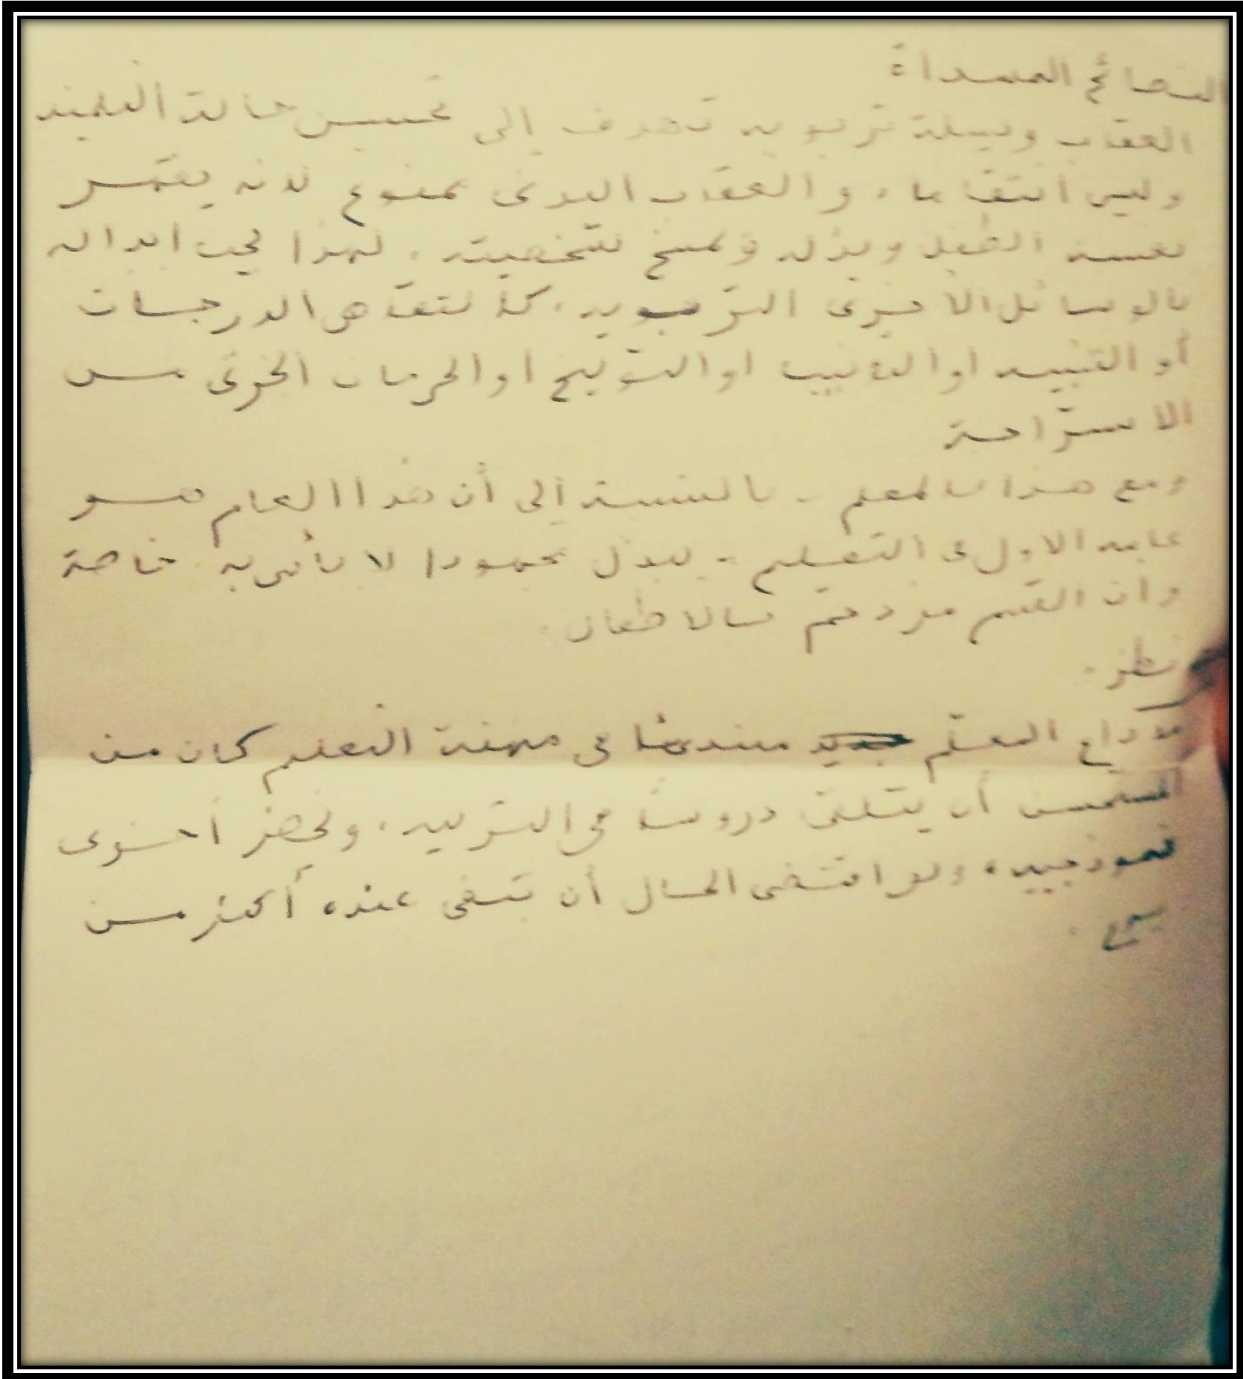 النصائح المسداة
العقاب وسيلة تربوية تهدف إلى تحسين حالة التلميذ
وليس انتقاما. والعقاب البدني ممنوع لأنه يقتل
نفسية الطفل ويذله ويمسخ شخصيته. لهذا يجب ابداله
بالوسائل الاخرى التربوية. كانتقاص الدرجات
أو التنبيه او التانيب او التوبيخ او الحرمان الجزئى مـن
الاستراحة
ومع هذا فالمعلم - بالنسبة إلى أن هذا العام هـو
عامه الاول فى التعليم - يبذل مجهودا لا بأس به خاصة
وان القسم مزدحم بالاطفال.
نظر.
مادام المعلم مبتدئا فى مهنة التعليم كان من
المستحسن أن يتلقى دروسا فى التربية. ويحضر أخرى
نموذجية، ولو اقتضى الحال أن تبقى عنده أكثر مـن